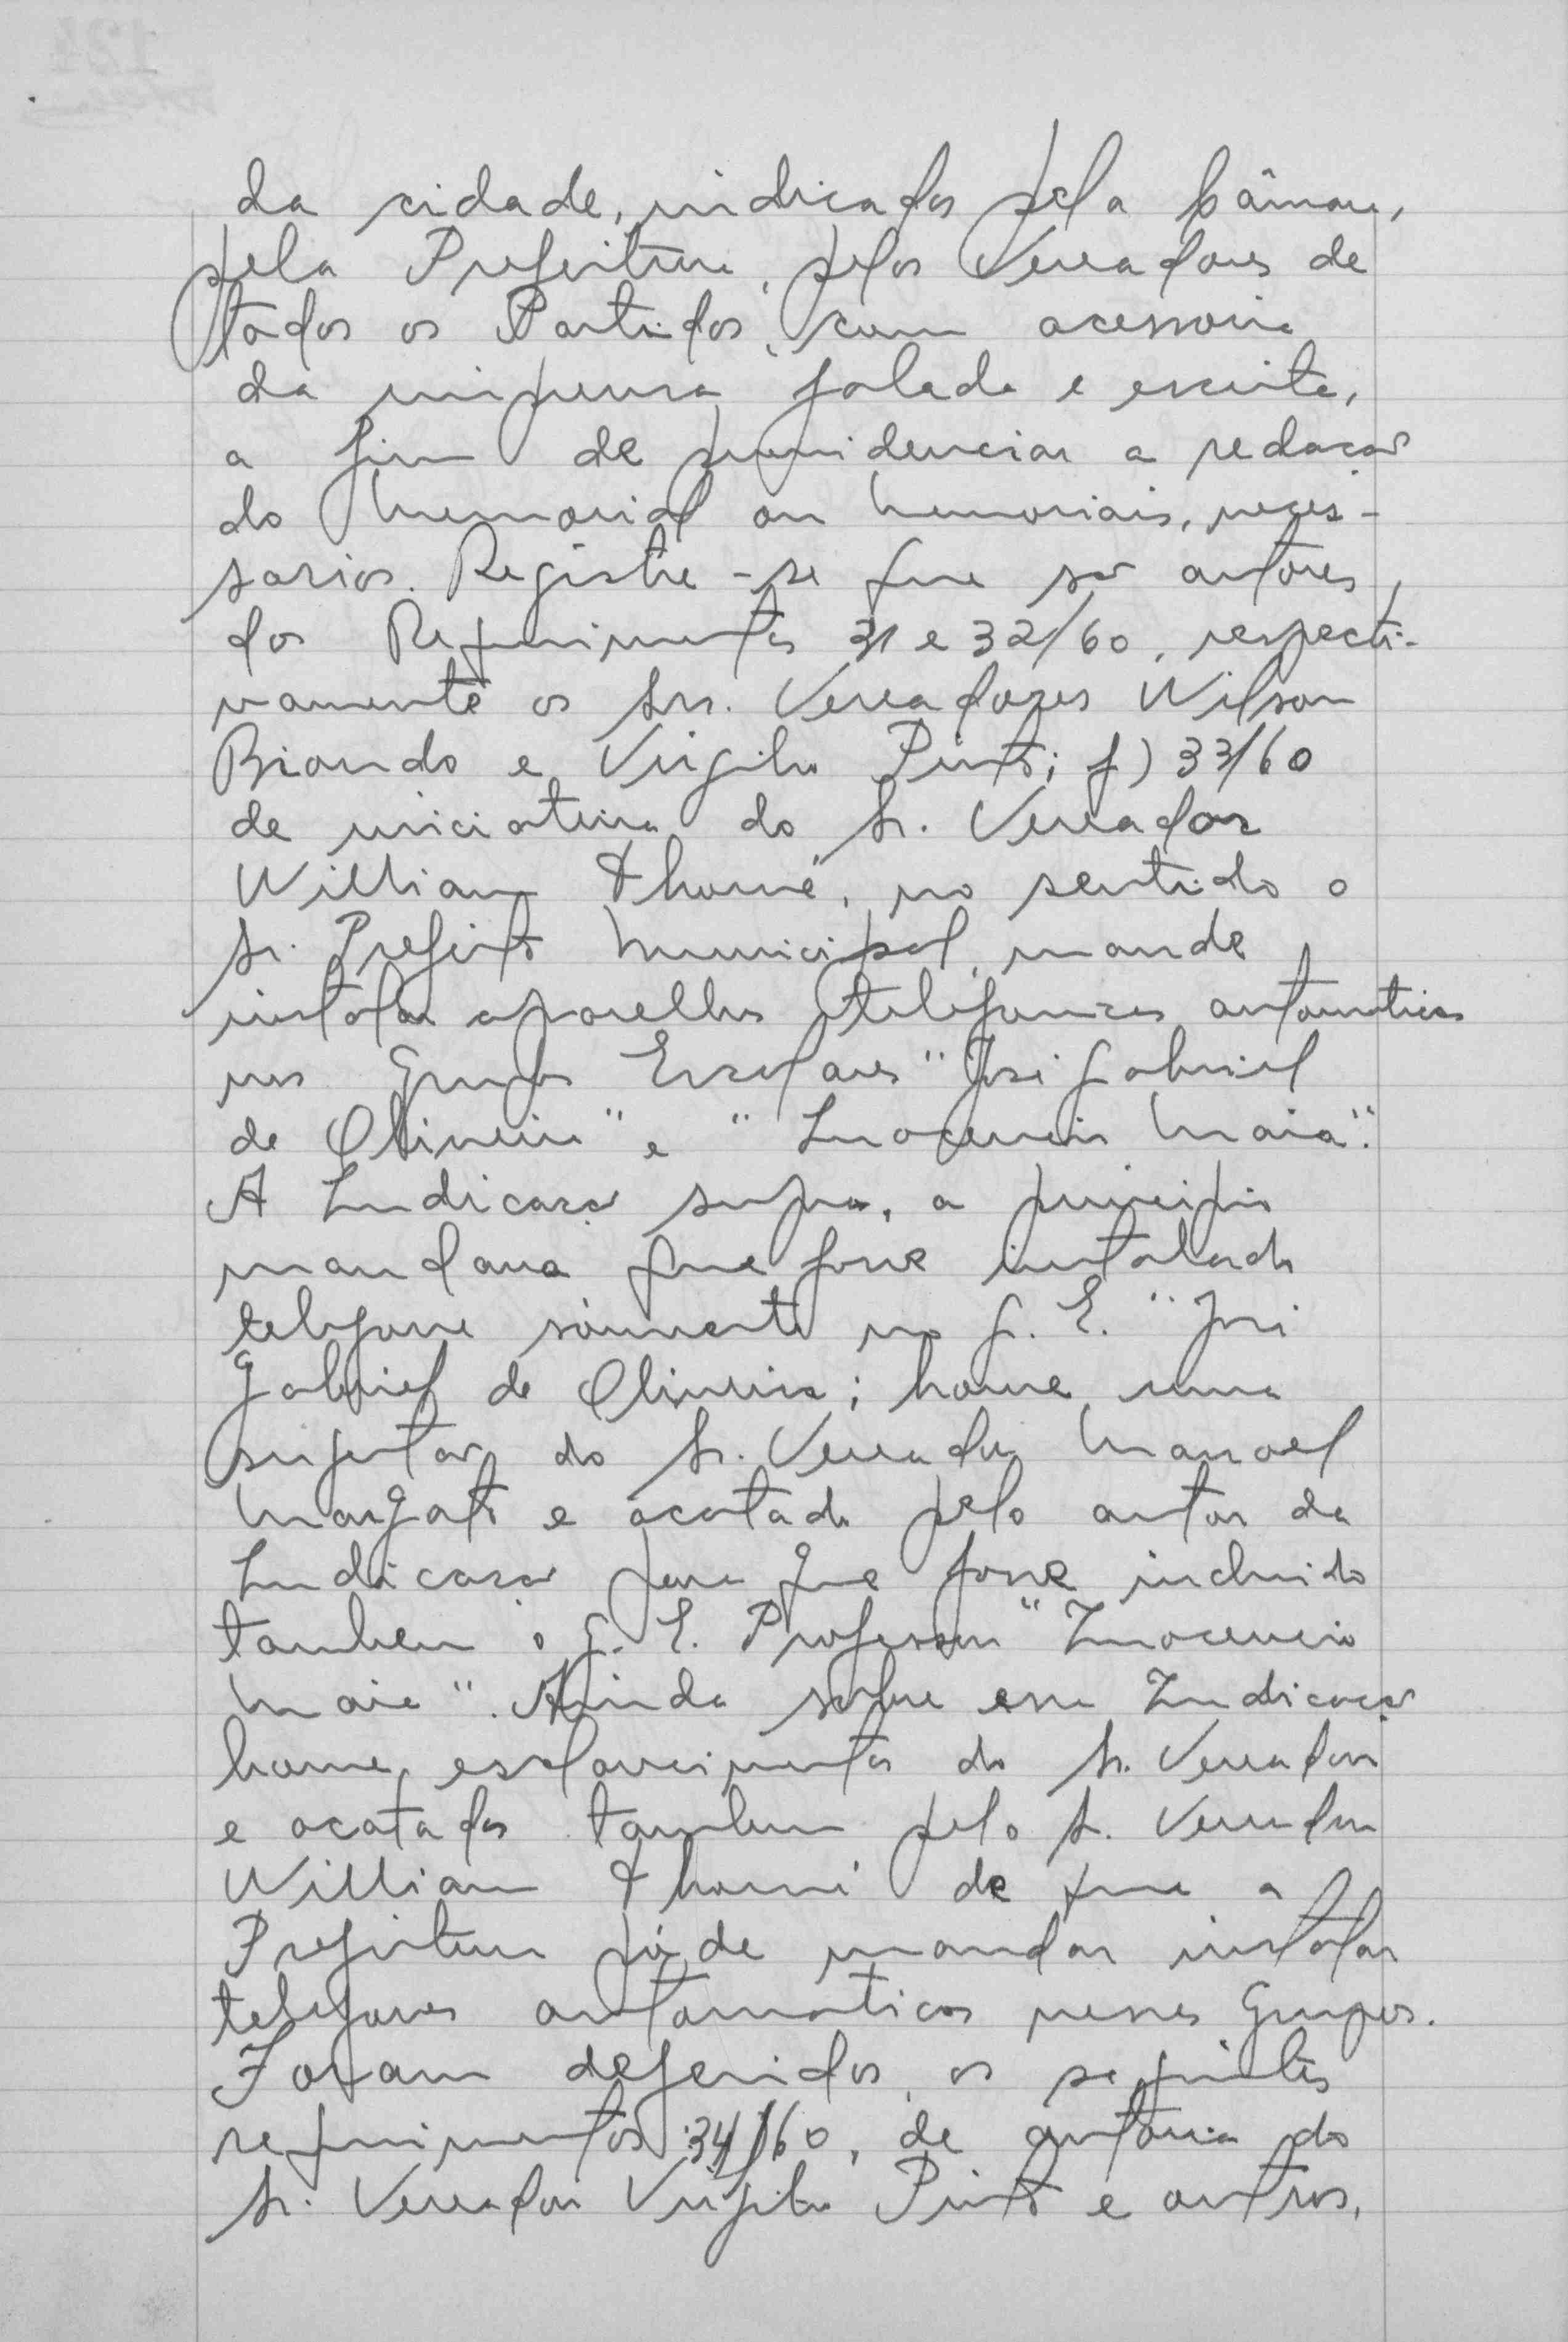 da cidade, indicados pela Câmara,
pela Prefeitura, pelos Vereadores de
todos os Partidos, com acessoria
da imprensa falada e escrita,
a fim de providenciar a redação
do memorial ou memoriais, neces-
sarios. Registre-se que são autores,
dos Requerimentos 31 e 32/60, respecti-
vamente os Srs. Vereadores Wilson
Briando e Virgilio Pinto; f) 33/60
de iniciativa do Sr. Vereador
William Thomé, no sentido o
Sr. Prefeito Municipal, mande
instalar aparelhos telefonicos automaticos
nos Grupos Escolares "José Gabriel
de Oliveira" e "Inocencio Maia".
A Indicação supra, a principio
mandava que fosse instalado
telefone sómente no G. E. "José
Gabriel de Oliveira; houve uma
sugestão do Sr. Vereador Manoel
Margato e acatada pelo autor da
Indicação para que fosse incluido
tambem o G. E. Professor "Inocencio
Maia". Ainda sobre essa Indicação
houve, esclarecimentos do Sr. Vereador
e acatados tambem pelo Sr. Vereador
William Thomé de que a
Prefeitura póde mandar instalar
telefones automaticos nesses Grupos.
Foram deferidos, os seguintes
requerimentos: 34/60, de autoria do
Sr. Vereador Virgilio Pinto e outros,